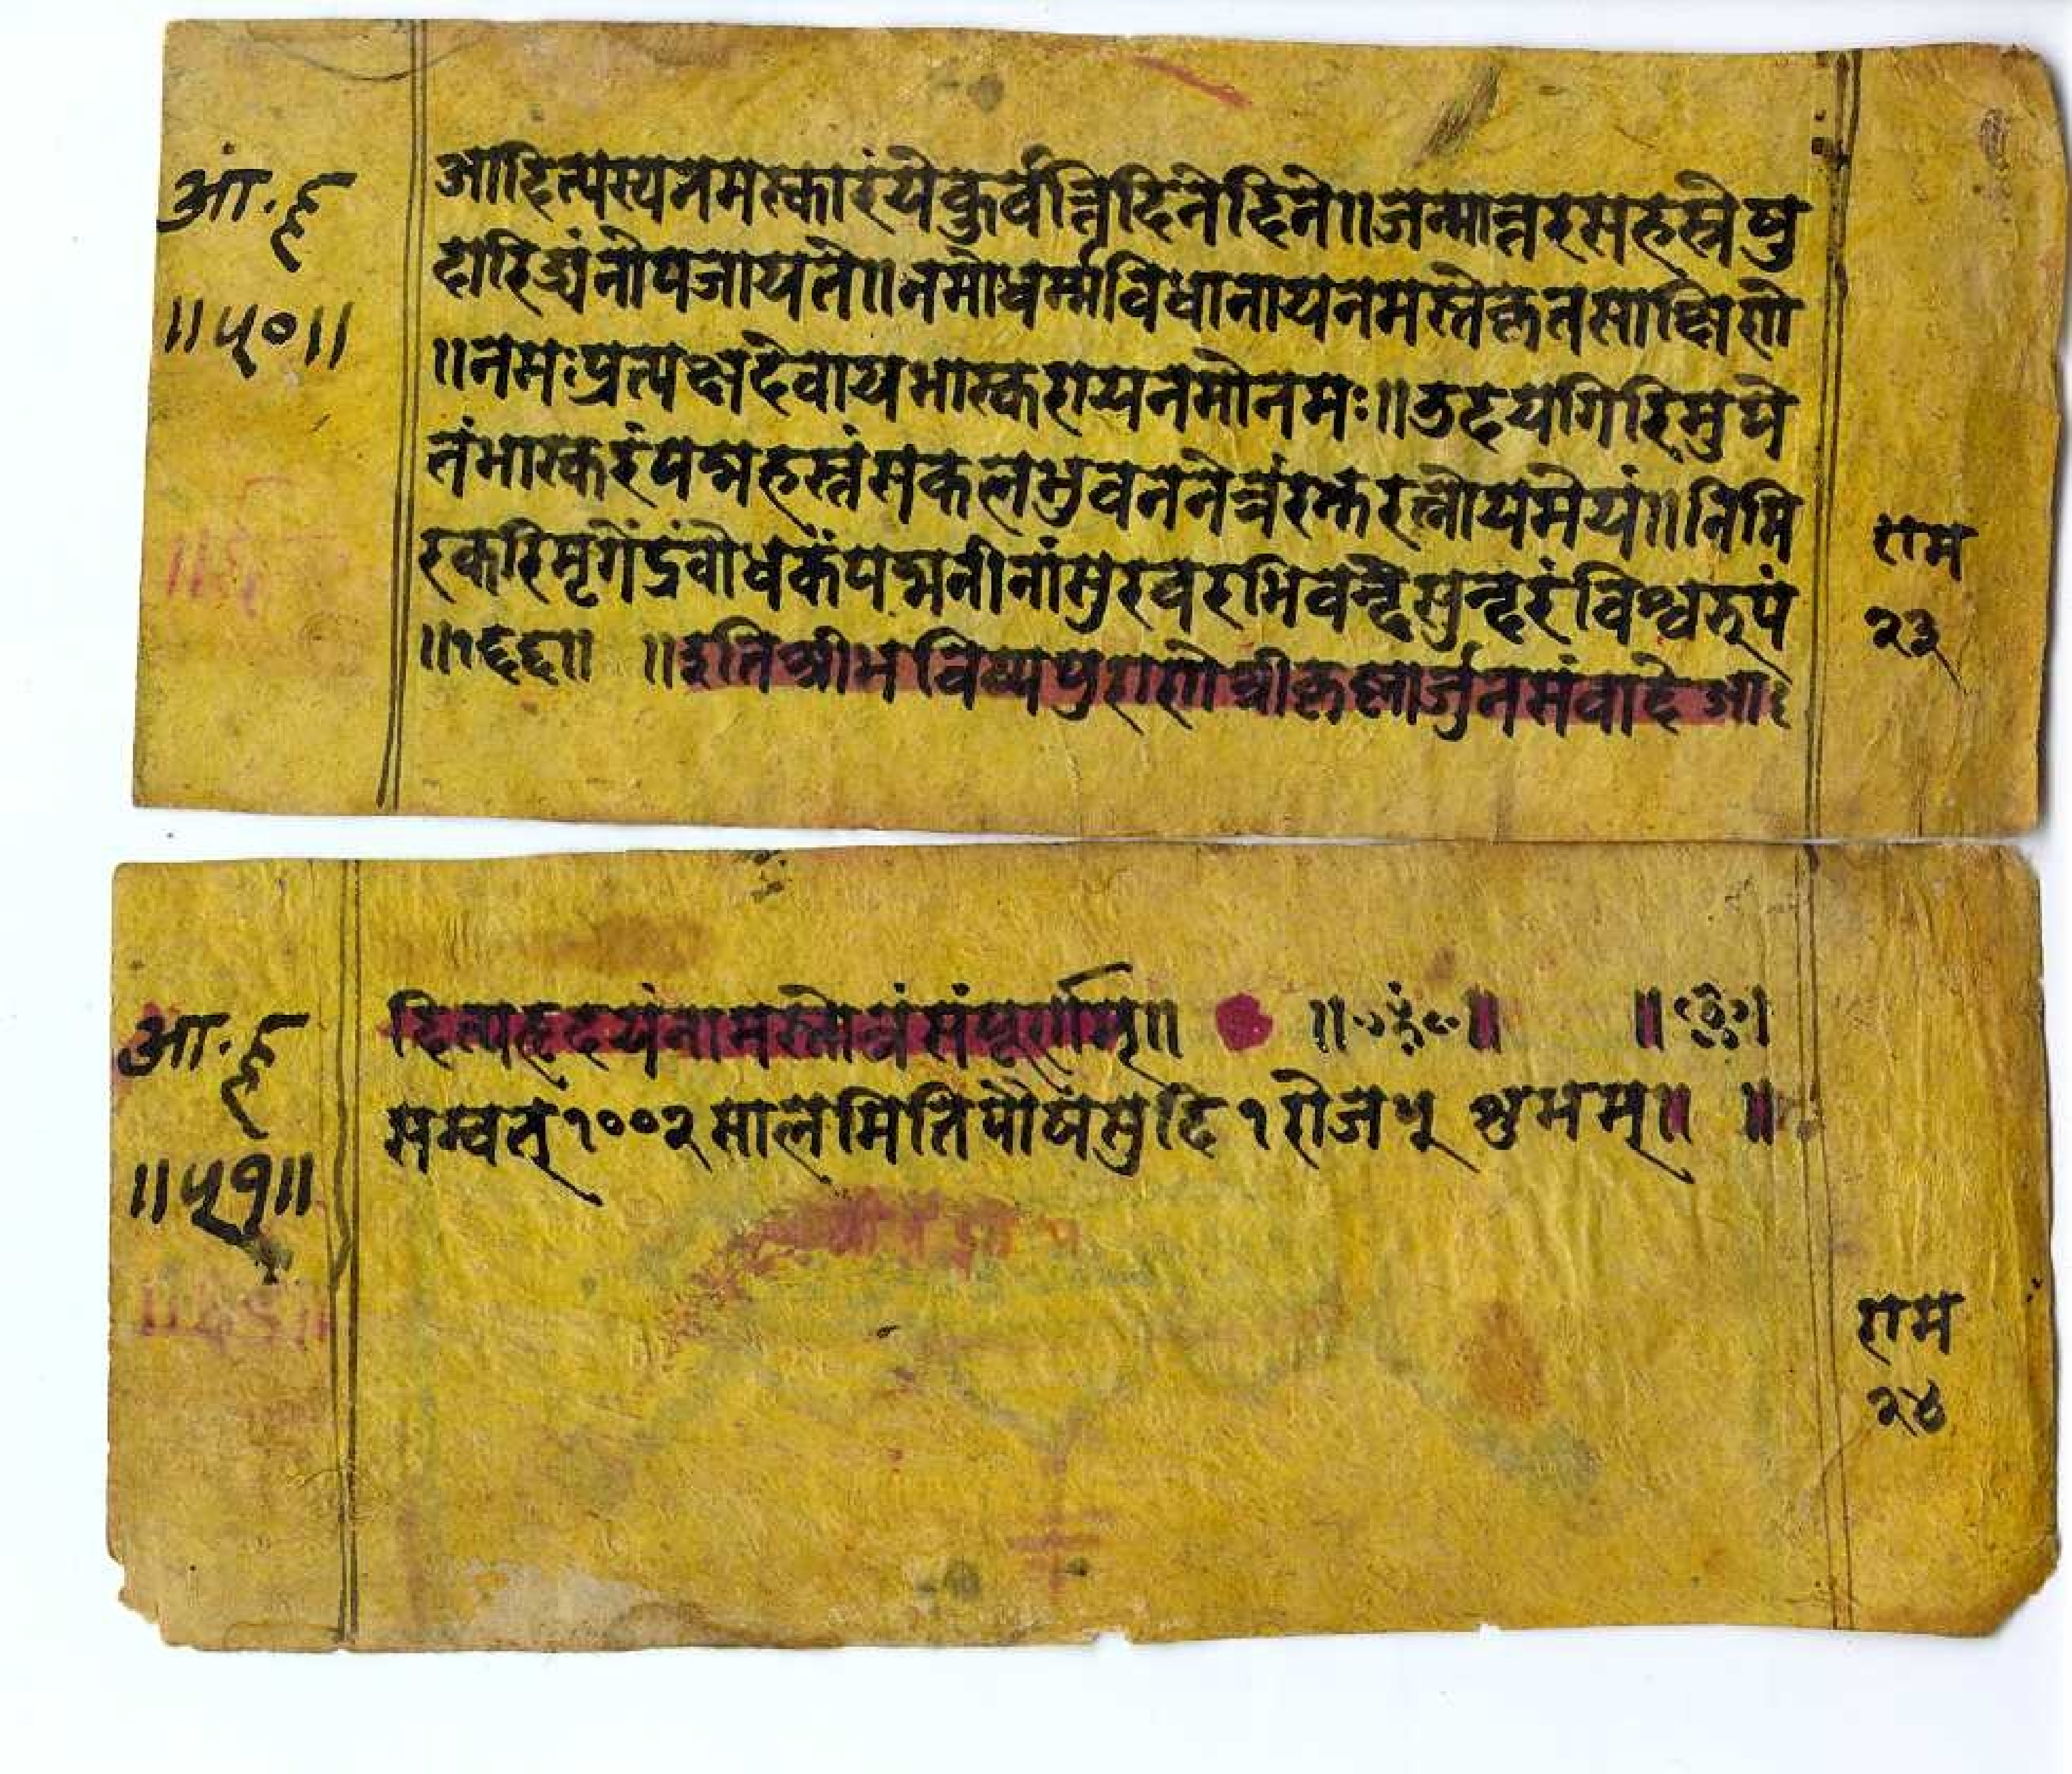 आ.हृ
॥५०॥
आदित्यस्यनमस्कारंयेकुर्वन्तिदिनेदिने॥जन्मान्तरसहस्रेषु
दारिद्र्यंनोपजायते॥नमोधर्म्मविधानायनमस्तेकृतसाक्षिणे
॥नमःप्रत्यक्षदेवायभास्करायनमोनमः॥उदयगिरिमुपे
तंभास्करंपद्महस्तंसकलभुवननेत्रंरक्तरत्नोयमेयं॥तिमि
रकरिमृगेंद्रंवोधकंपद्मनीनांसुरवरमभिवन्द्दैसुन्दरंविश्वरूपं
॥१६६॥ ॥इतिश्रीभविष्यपुराणेश्रीकृष्णार्जुनसंवादेआ
राम
२३
आ.हृ
॥५१॥
दित्यहृदयंनामस्तोत्रंसंपूर्णम्॥
सम्वत् १००२ सालमितिपौषसुदि १ रोज ५ शुभमम्॥ ॥
राम
२४